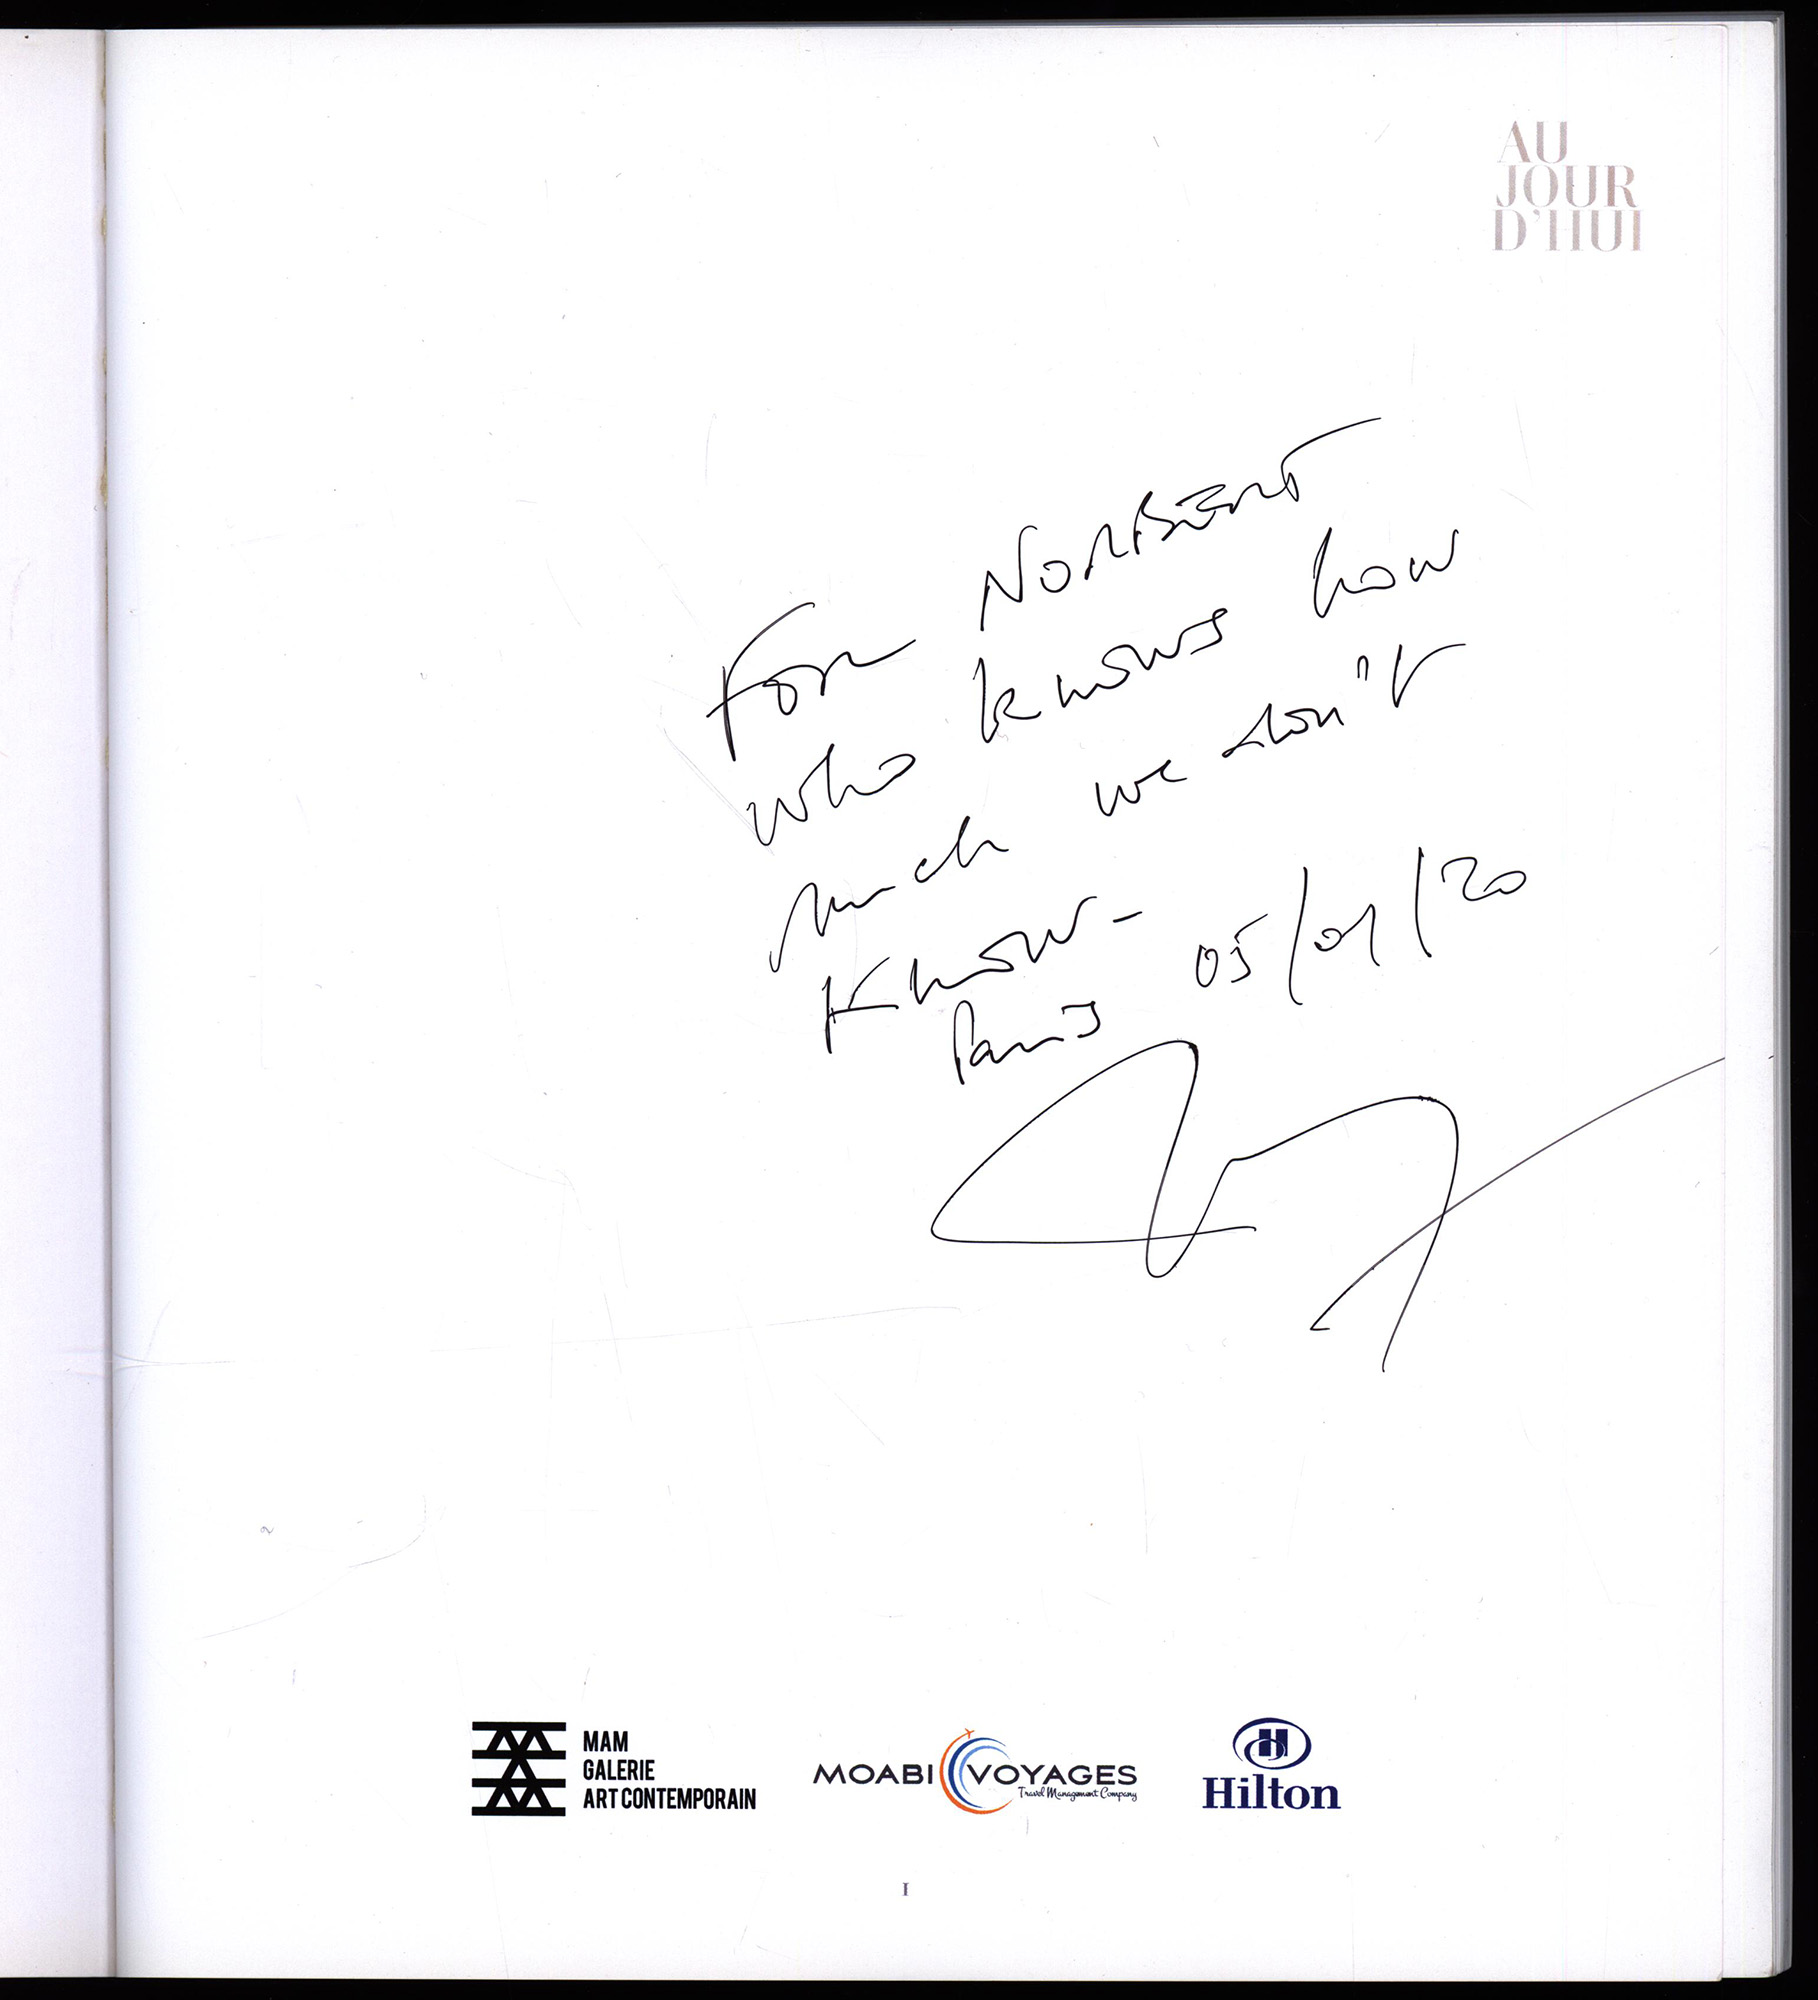 AU
JOUR
D'HUI
For Norbert
who knows how
much we don't
know -
Paris 05/01/20
MAM
GALERIE
ART CONTEMPORAIN
MOABI VOYAGES
Travel Management Company
H
Hilton
I